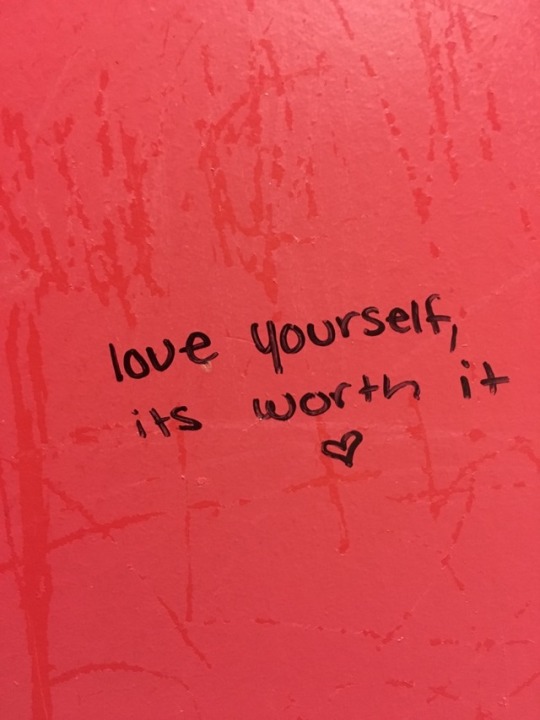 love yourself,
its worth it
♡